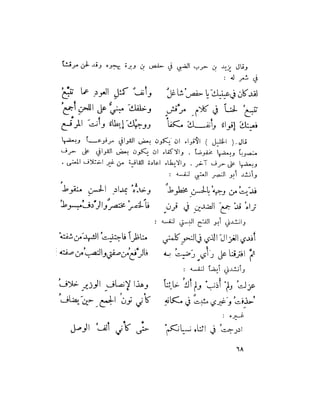 وقال يزيد بن حرب الضبي في حفص بن وبرة يهجوه وقد لحن مرقشاً
في شعر له :
لقد كان في عينيك يا حفص شاغل وأنف كمثل العود عما تتبع
تتبع لحناً في كلام مرقش وخلقك مبني على اللحن أجمع
فعينك إقواء وأنفك مكفأ ووجهك إيطاء وأنت المرقع
قال ( الخليل ) الأقواء ان يكون بعض القوافي مرفوعاً وبعضها
منصوباً وبعضها مخفوضاً . والاكفاء ان يكون بعض القوافي على حرف
وبعضها على حرف آخر . والايطاء اعادة القافية من غير اختلاف المعنى .
وأنشد أبو النصر العتبي لنفسه :
فديت من وجهه بالحسن مخطوط وخده بمداد الحسن منقوط
تراه قد جمع الضدين في قرن فالخصر مختصر والردف مبسوط
وانشدني أبو الفتح البستي لنفسه :
أفدي الغزال الذي في النحو كلمني مناظراً فاجتنيت الشهد من شفته
ثم افترقنا على رأي رضيت به فالرفع من صفتي والنصب من صفته
وأنشدني أيضاً لنفسه :
عزلت ولم أذنب ولم أك خائناً وهذا لإنصاف الوزير خلاف
حذفت وغيري مثبت في مكانه كأني نون الجمع حين يضاف
غيره :
ادرجت في اثناء نسيانكم حتى كأني ألف الوصل
٦٨